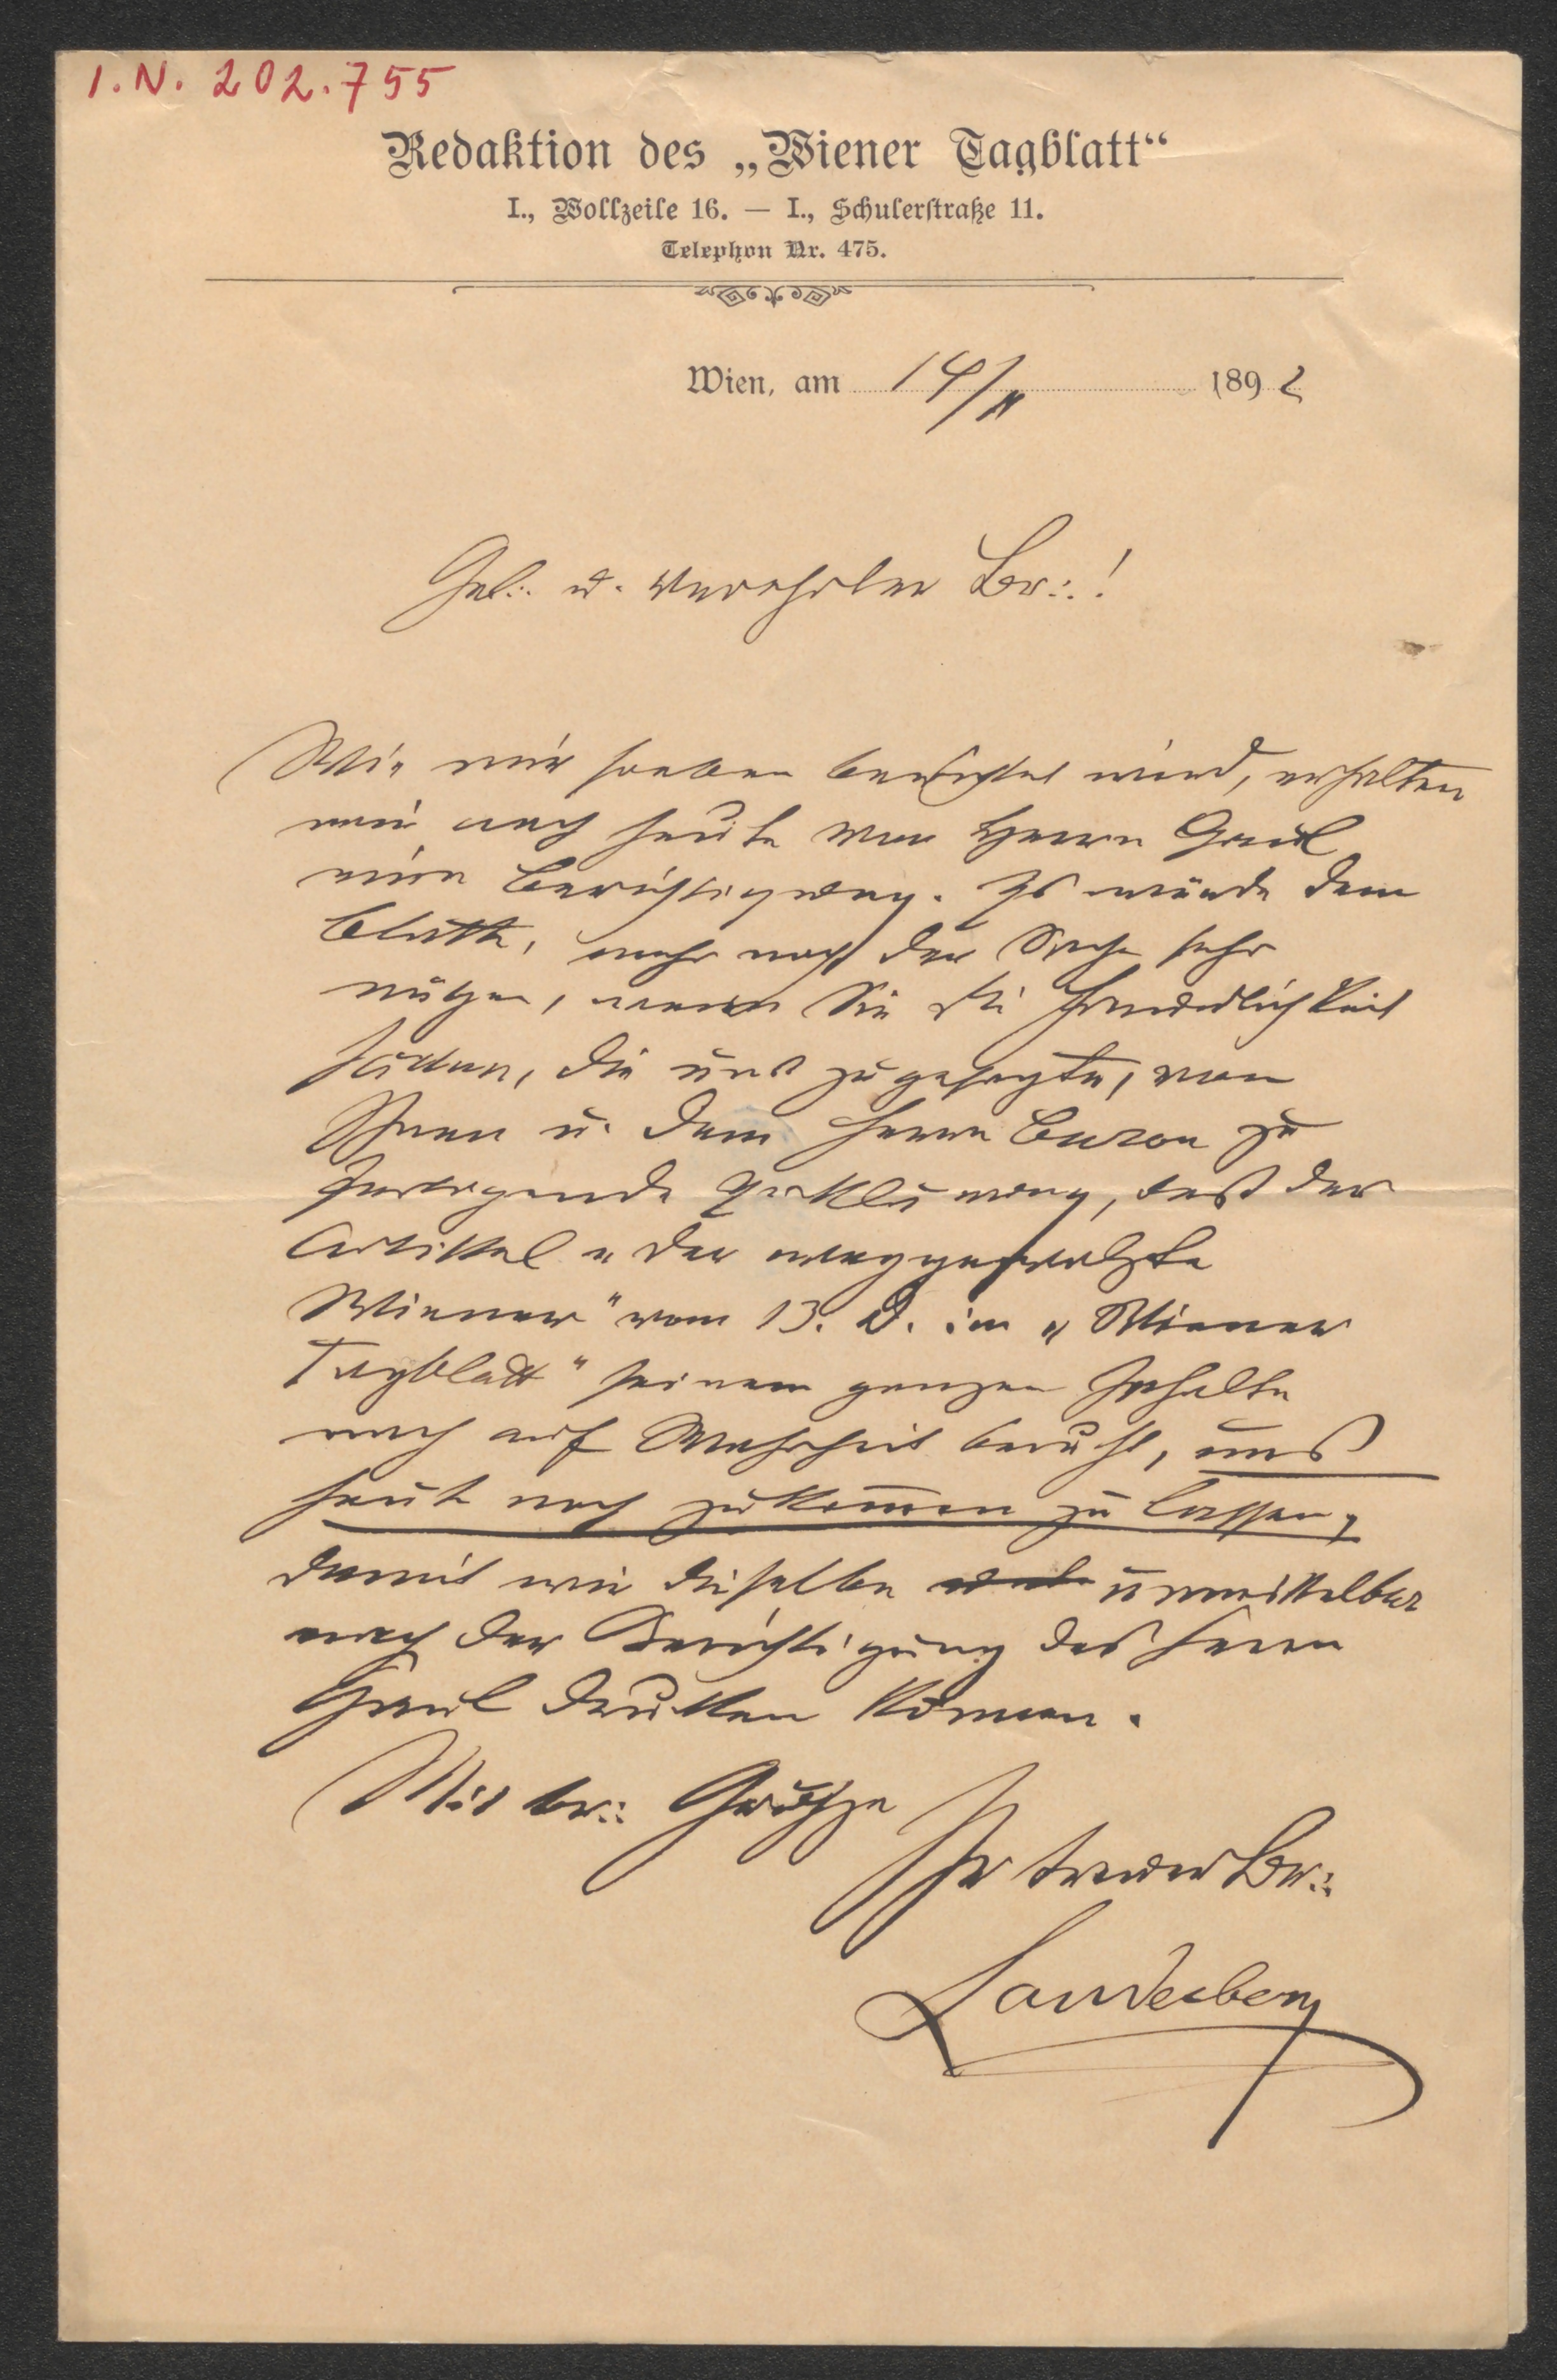 I. N. 202.755
Redaktion des „Wiener Tagblatt“
I., Wollzeile 16. — I., Schulerstraße 11.
Telephon Nr. 475.
Wien, am 14/II 1892
Gel:. u. verehrter Br:.!
Wie mir soeben berichtet wird, erhalten
wir noch heute von Herrn Graul
eine Berichtigung. Es würde dem
Blatte, mehr noch der Sache sehr
nützen, wenn Sie die Freundlichkeit
hätten, die uns zugesagte, von
Ihnen u. dem Herrn Baron zu
fertigende Erklärung, daß der
Artikel „Der
Wiener“ vom 13. d. im „Wiener
Tagblatt“ seinem ganzen Inhalte
nach auf Wahrheit beruht, uns
heute noch zukommen zu lassen,
damit wir dieselbe unmittelbar
nach der Berichtigung des Herrn
Graul drucken können.
Mit br:. Grüßen
Ihr treuer Br:.
Landesberg